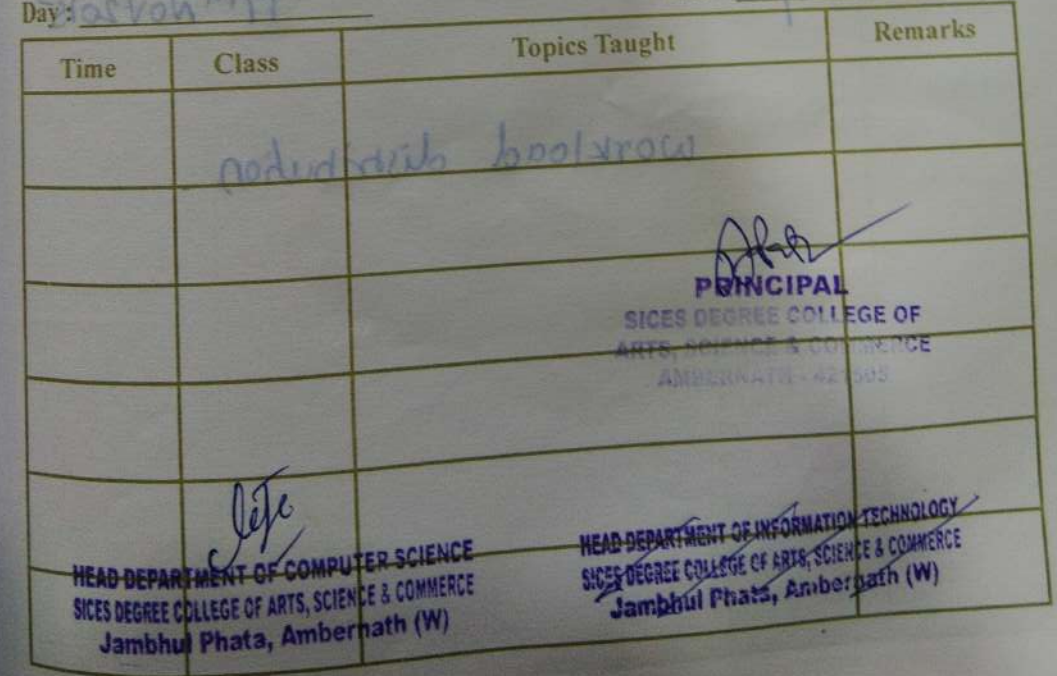 Day :
Time Class Topics Taught Remarks
workload distribution
PRINCIPAL
SICES DEGREE COLLEGE OF
ARTS, SCIENCE & COMMERCE
AMBERNATH - 421505
HEAD DEPARTMENT OF COMPUTER SCIENCE
SICES DEGREE COLLEGE OF ARTS, SCIENCE & COMMERCE
Jambhul Phata, Ambernath (W)
HEAD DEPARTMENT OF INFORMATION TECHNOLOGY
SICES DEGREE COLLEGE OF ARTS, SCIENCE & COMMERCE
Jambhul Phata, Ambernath (W)